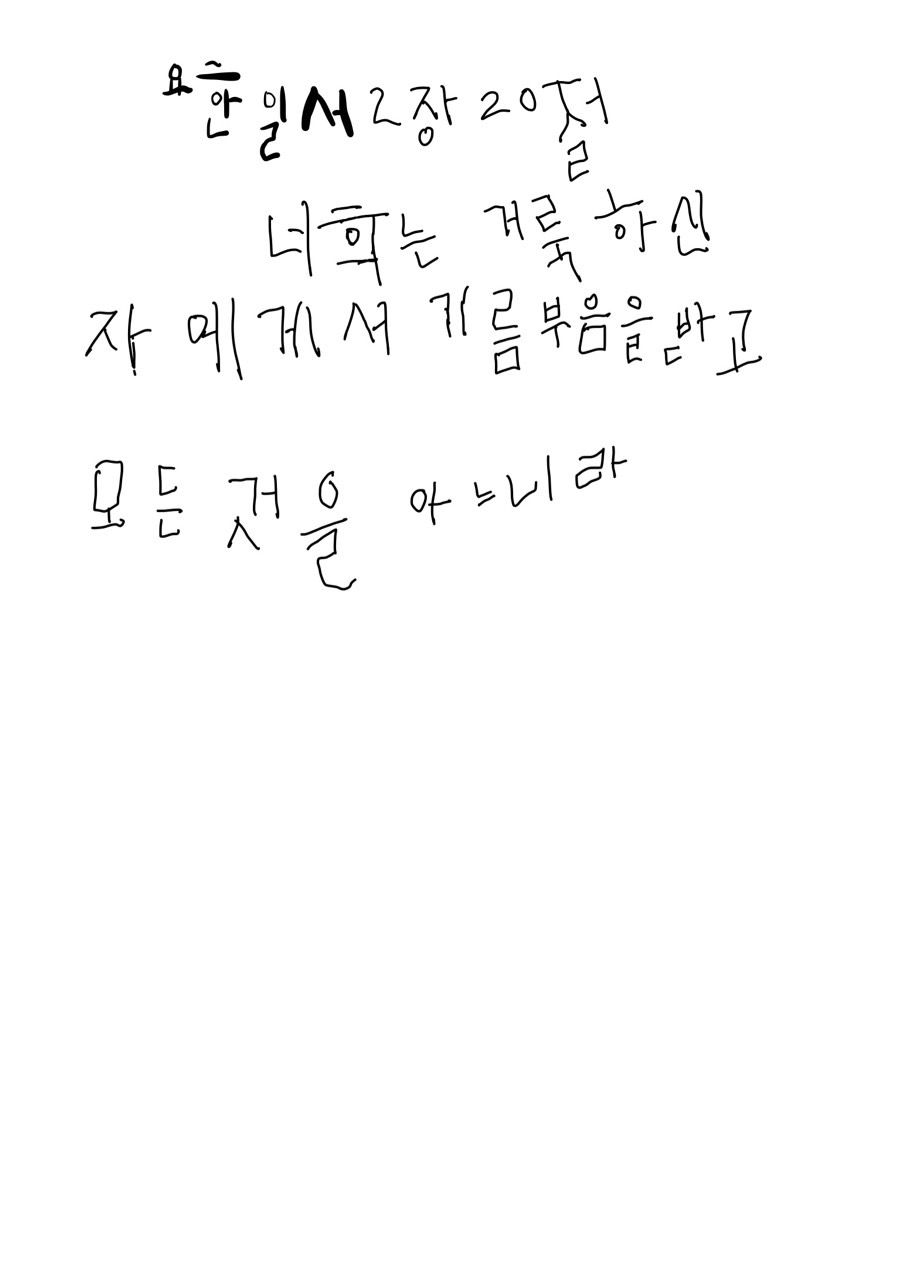 요한일서 2장 20절
너희는 거룩하신
자에게서 기름부음을 받고
모든 것을 아느니라